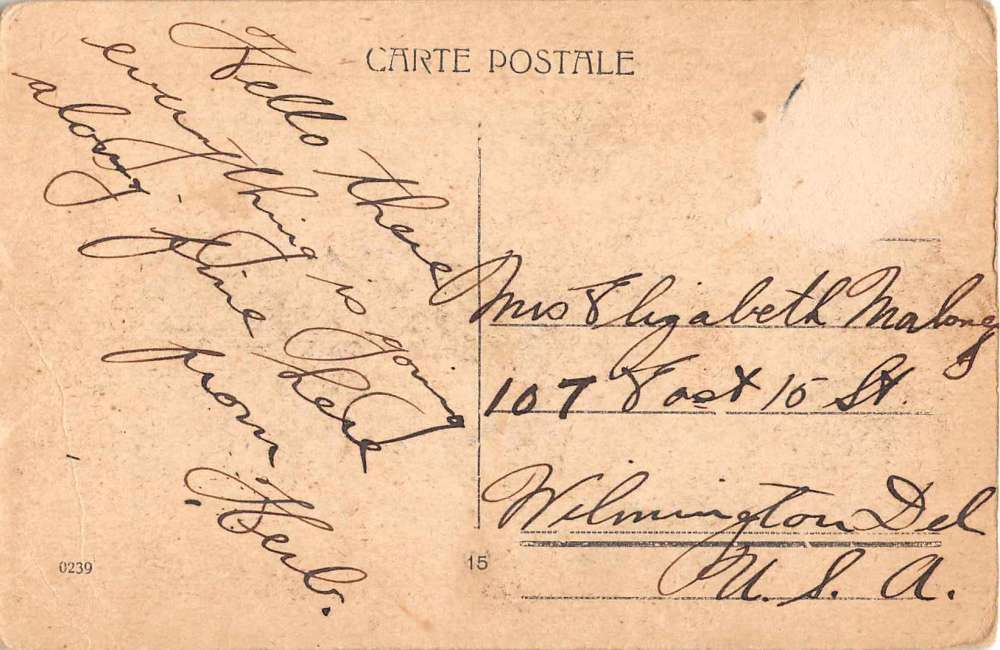 CARTE POSTALE
Hello there
everything is going
along fine here
from
Herb.
Mrs Elizabeth Maloney
107 East 15 St.
Wilmington Del
U. S. A.
0239
15